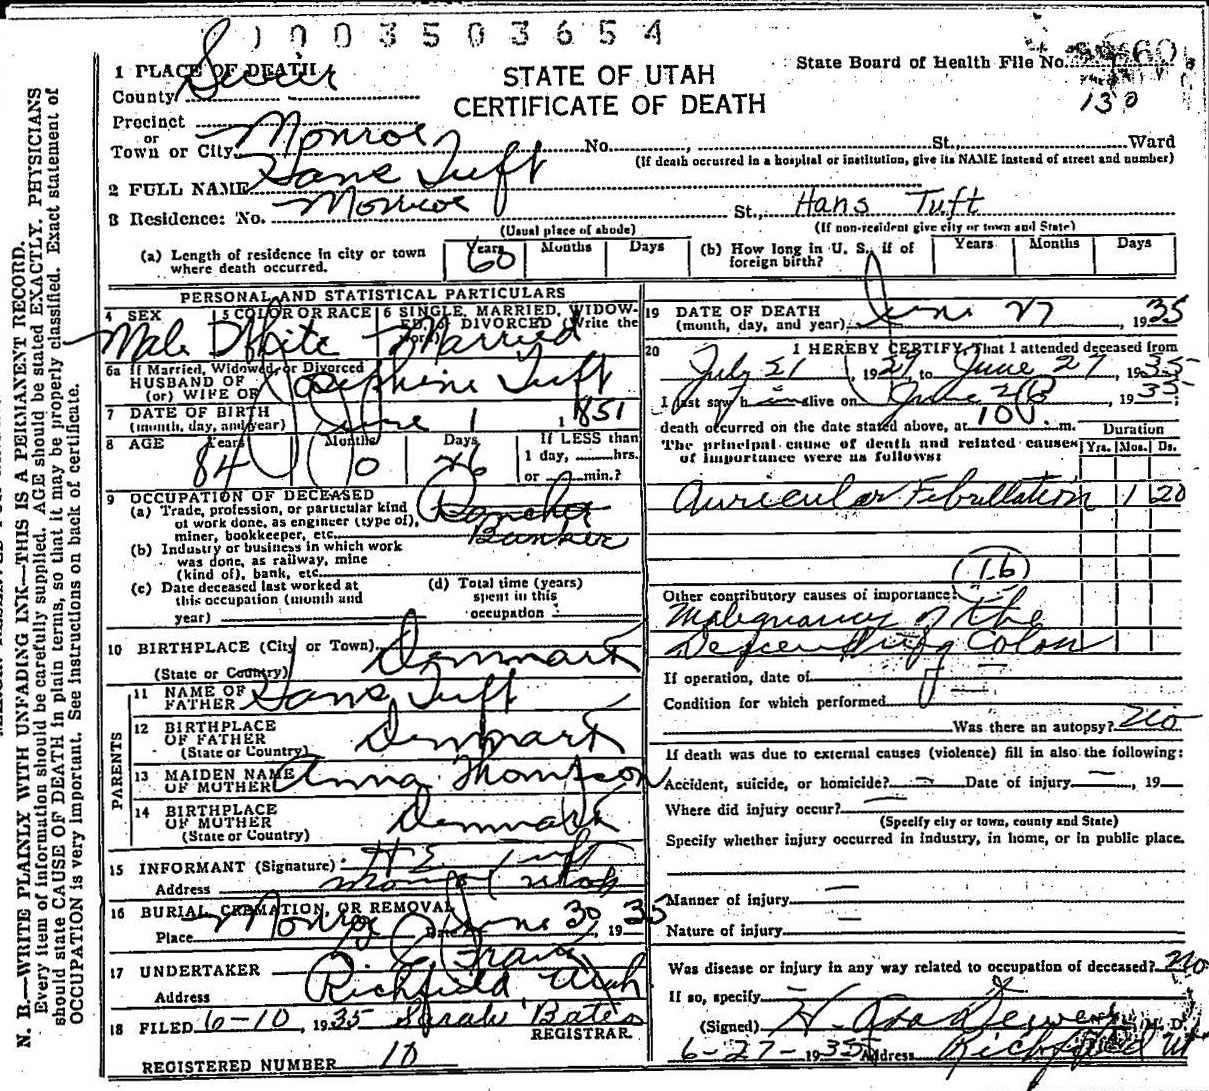 1003503654
STATE OF UTAH
CERTIFICATE OF DEATH
State Board of Health File No. 60
130
1 PLACE OF DEATH
County Sevier
Precinct
or
Town or City Monroe No. , St., Ward
(If death occurred in a hospital or institution, give its NAME instead of street and number)
2 FULL NAME Hans Tuft
3 Residence: No. Monroe St., Hans Tuft
(Usual place of abode) (If non-resident give city or town and State)
(a) Length of residence in city or town where death occurred. Years 60 Months Days
(b) How long in U. S., if of foreign birth? Years Months Days
PERSONAL AND STATISTICAL PARTICULARS
4 SEX Male
5 COLOR OR RACE White
6 SINGLE, MARRIED, WIDOWED, or DIVORCED (Write the word) Married
6a If Married, Widowed or Divorced
HUSBAND OF
(or) WIFE OF Josephine Tuft
7 DATE OF BIRTH
(month, day, and year) June 1, 1851
8 AGE Years 84 Months 0 Days 26 If LESS than
1 day, hrs.
or min.?
9 OCCUPATION OF DECEASED
(a) Trade, profession, or particular kind
of work done, as engineer (type of),
miner, bookkeeper, etc. Rancher
Banker
(b) Industry or business in which work
was done, as railway, mine
(kind of), bank, etc.
(c) Date deceased last worked at
this occupation (month and
year)
(d) Total time (years)
spent in this
occupation
10 BIRTHPLACE (City or Town) Denmark
(State or Country)
PARENTS
11 NAME OF
FATHER Hans Tuft
12 BIRTHPLACE
OF FATHER Denmark
(State or Country)
13 MAIDEN NAME
OF MOTHER Anna Thompson
14 BIRTHPLACE
OF MOTHER Denmark
(State or Country)
15 INFORMANT (Signature) H E Tuft
Address Monroe Utah
16 BURIAL, CREMATION, OR REMOVAL
Place Monroe Date June 30, 1935
17 UNDERTAKER
Address Richfield, Utah
18 FILED 6-10, 1935 Sarah Bates
REGISTRAR.
REGISTERED NUMBER 10
19 DATE OF DEATH
(month, day, and year) June 27, 1935
20 I HEREBY CERTIFY, That I attended deceased from
July 21, 1927 to June 27, 1935
I last saw h im alive on June 26, 1935
death occurred on the date stated above, at m. Duration
The principal cause of death and related causes
of importance were as follows: Yrs. Mos. Ds.
Auricular Fibrillation 1 20
(16)
Other contributory causes of importance:
Malignancy of the
Descending Colon
If operation, date of
Condition for which performed
Was there an autopsy? No
If death was due to external causes (violence) fill in also the following:
Accident, suicide, or homicide? Date of injury , 19
Where did injury occur?
(Specify city or town, county and State)
Specify whether injury occurred in industry, in home, or in public place.
Manner of injury
Nature of injury
Was disease or injury in any way related to occupation of deceased? no
If so, specify
(Signed) M. D.
6-27-1935 Address Richfield Ut
N. B.—WRITE PLAINLY WITH UNFADING INK—THIS IS A PERMANENT RECORD.
Every item of information should be carefully supplied. AGE should be stated EXACTLY. PHYSICIANS
should state CAUSE OF DEATH in plain terms, so that it may be properly classified. Exact statement of
OCCUPATION is very important. See instructions on back of certificate.